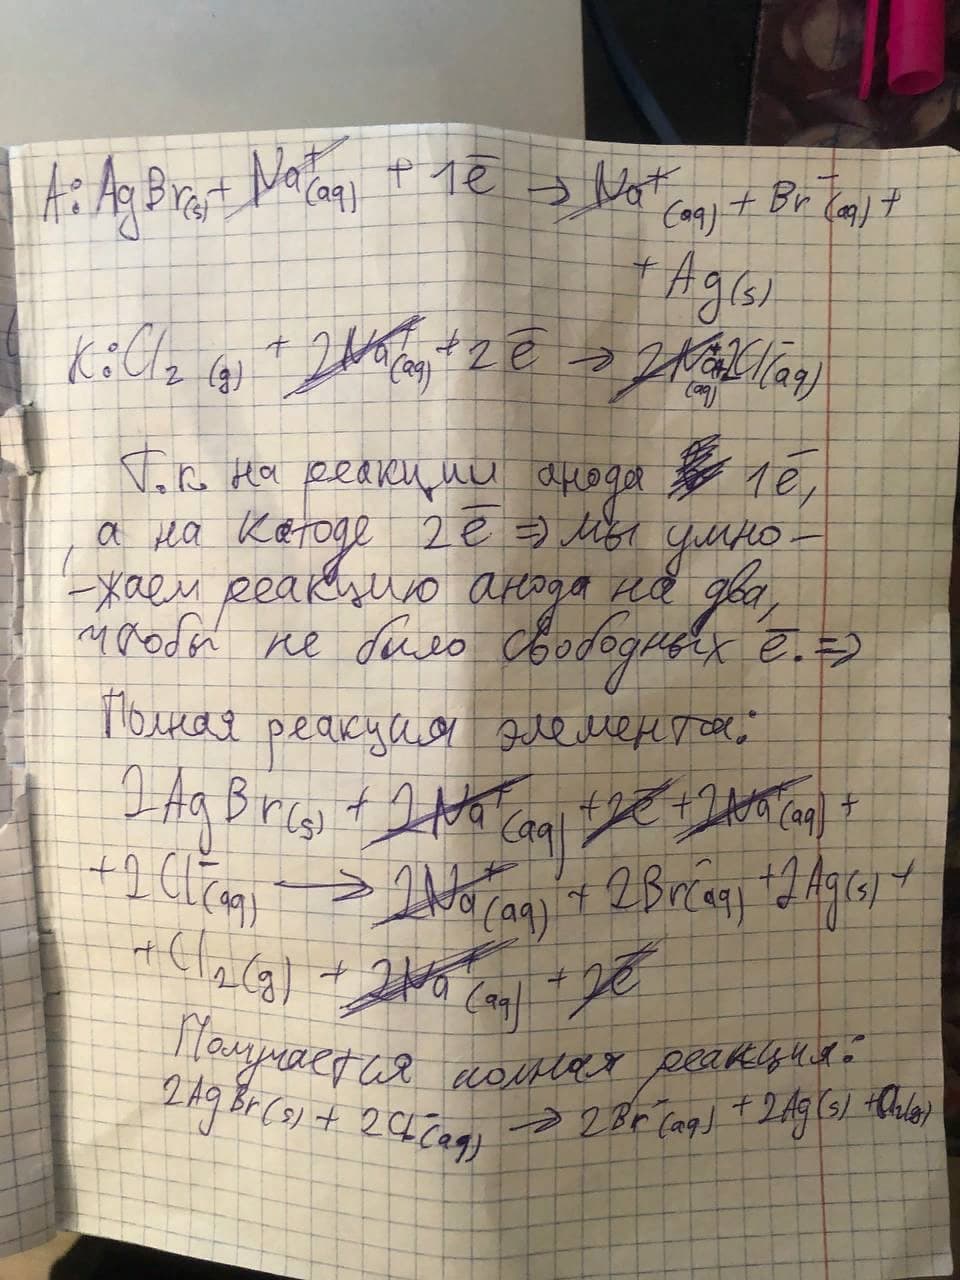 А: AgBr(s) + Na⁺(aq) + 1ē → Na⁺(aq) + Br⁻(aq) +
+ Ag(s)
К: Cl₂(g) + 2Na⁺(aq) + 2ē → 2Na⁺(aq) 2Cl⁻(aq)
Т.к. на реакции анода 1ē,
а на катоде 2ē ⇒ мы умно-
-жаем реакцию анода на два,
чтобы не было свободных ē. ⇒
Полная реакция элемента:
2AgBr(s) + 2Na⁺(aq) + 2ē + 2Na⁺(aq) +
+ 2Cl⁻(aq) → 2Na⁺(aq) + 2Br⁻(aq) + 2Ag(s) +
+ Cl₂(g) + 2Na⁺(aq) + 2ē
Получается полная реакция:
2AgBr(s) + 2Cl⁻(aq) → 2Br⁻(aq) + 2Ag(s) + Cl₂(g)